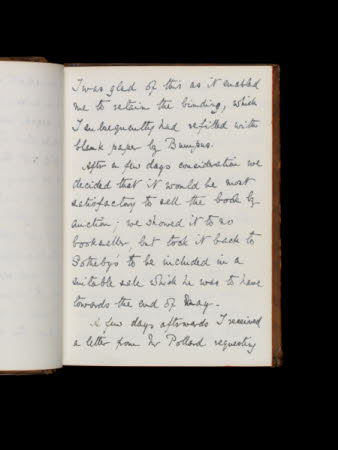 I was glad of this as it enabled
me to retain the binding, which
I subsequently had refilled with
blank paper by Bumpus.
After a few days consideration we
decided that it would be most
satisfactory to sell the book by
auction; we showed it to no
bookseller, but took it back to
Sotheby's to be included in a
suitable sale which he was to have
towards the end of May.
A few days afterwards I received
a letter from Mr Pollard requesting